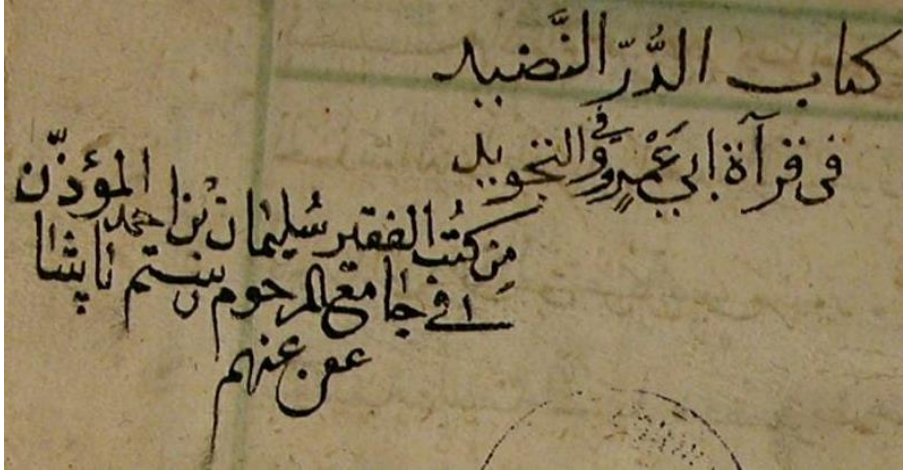 كتاب الدُّرّ النَّضيد
في قرآة ابي عَمْرٍو في والتجويد
مِن كُتُب الفقير سُليمان بْن احمد المؤذّن
في جامع المرحوم رستم پاشا
عفى عنهم